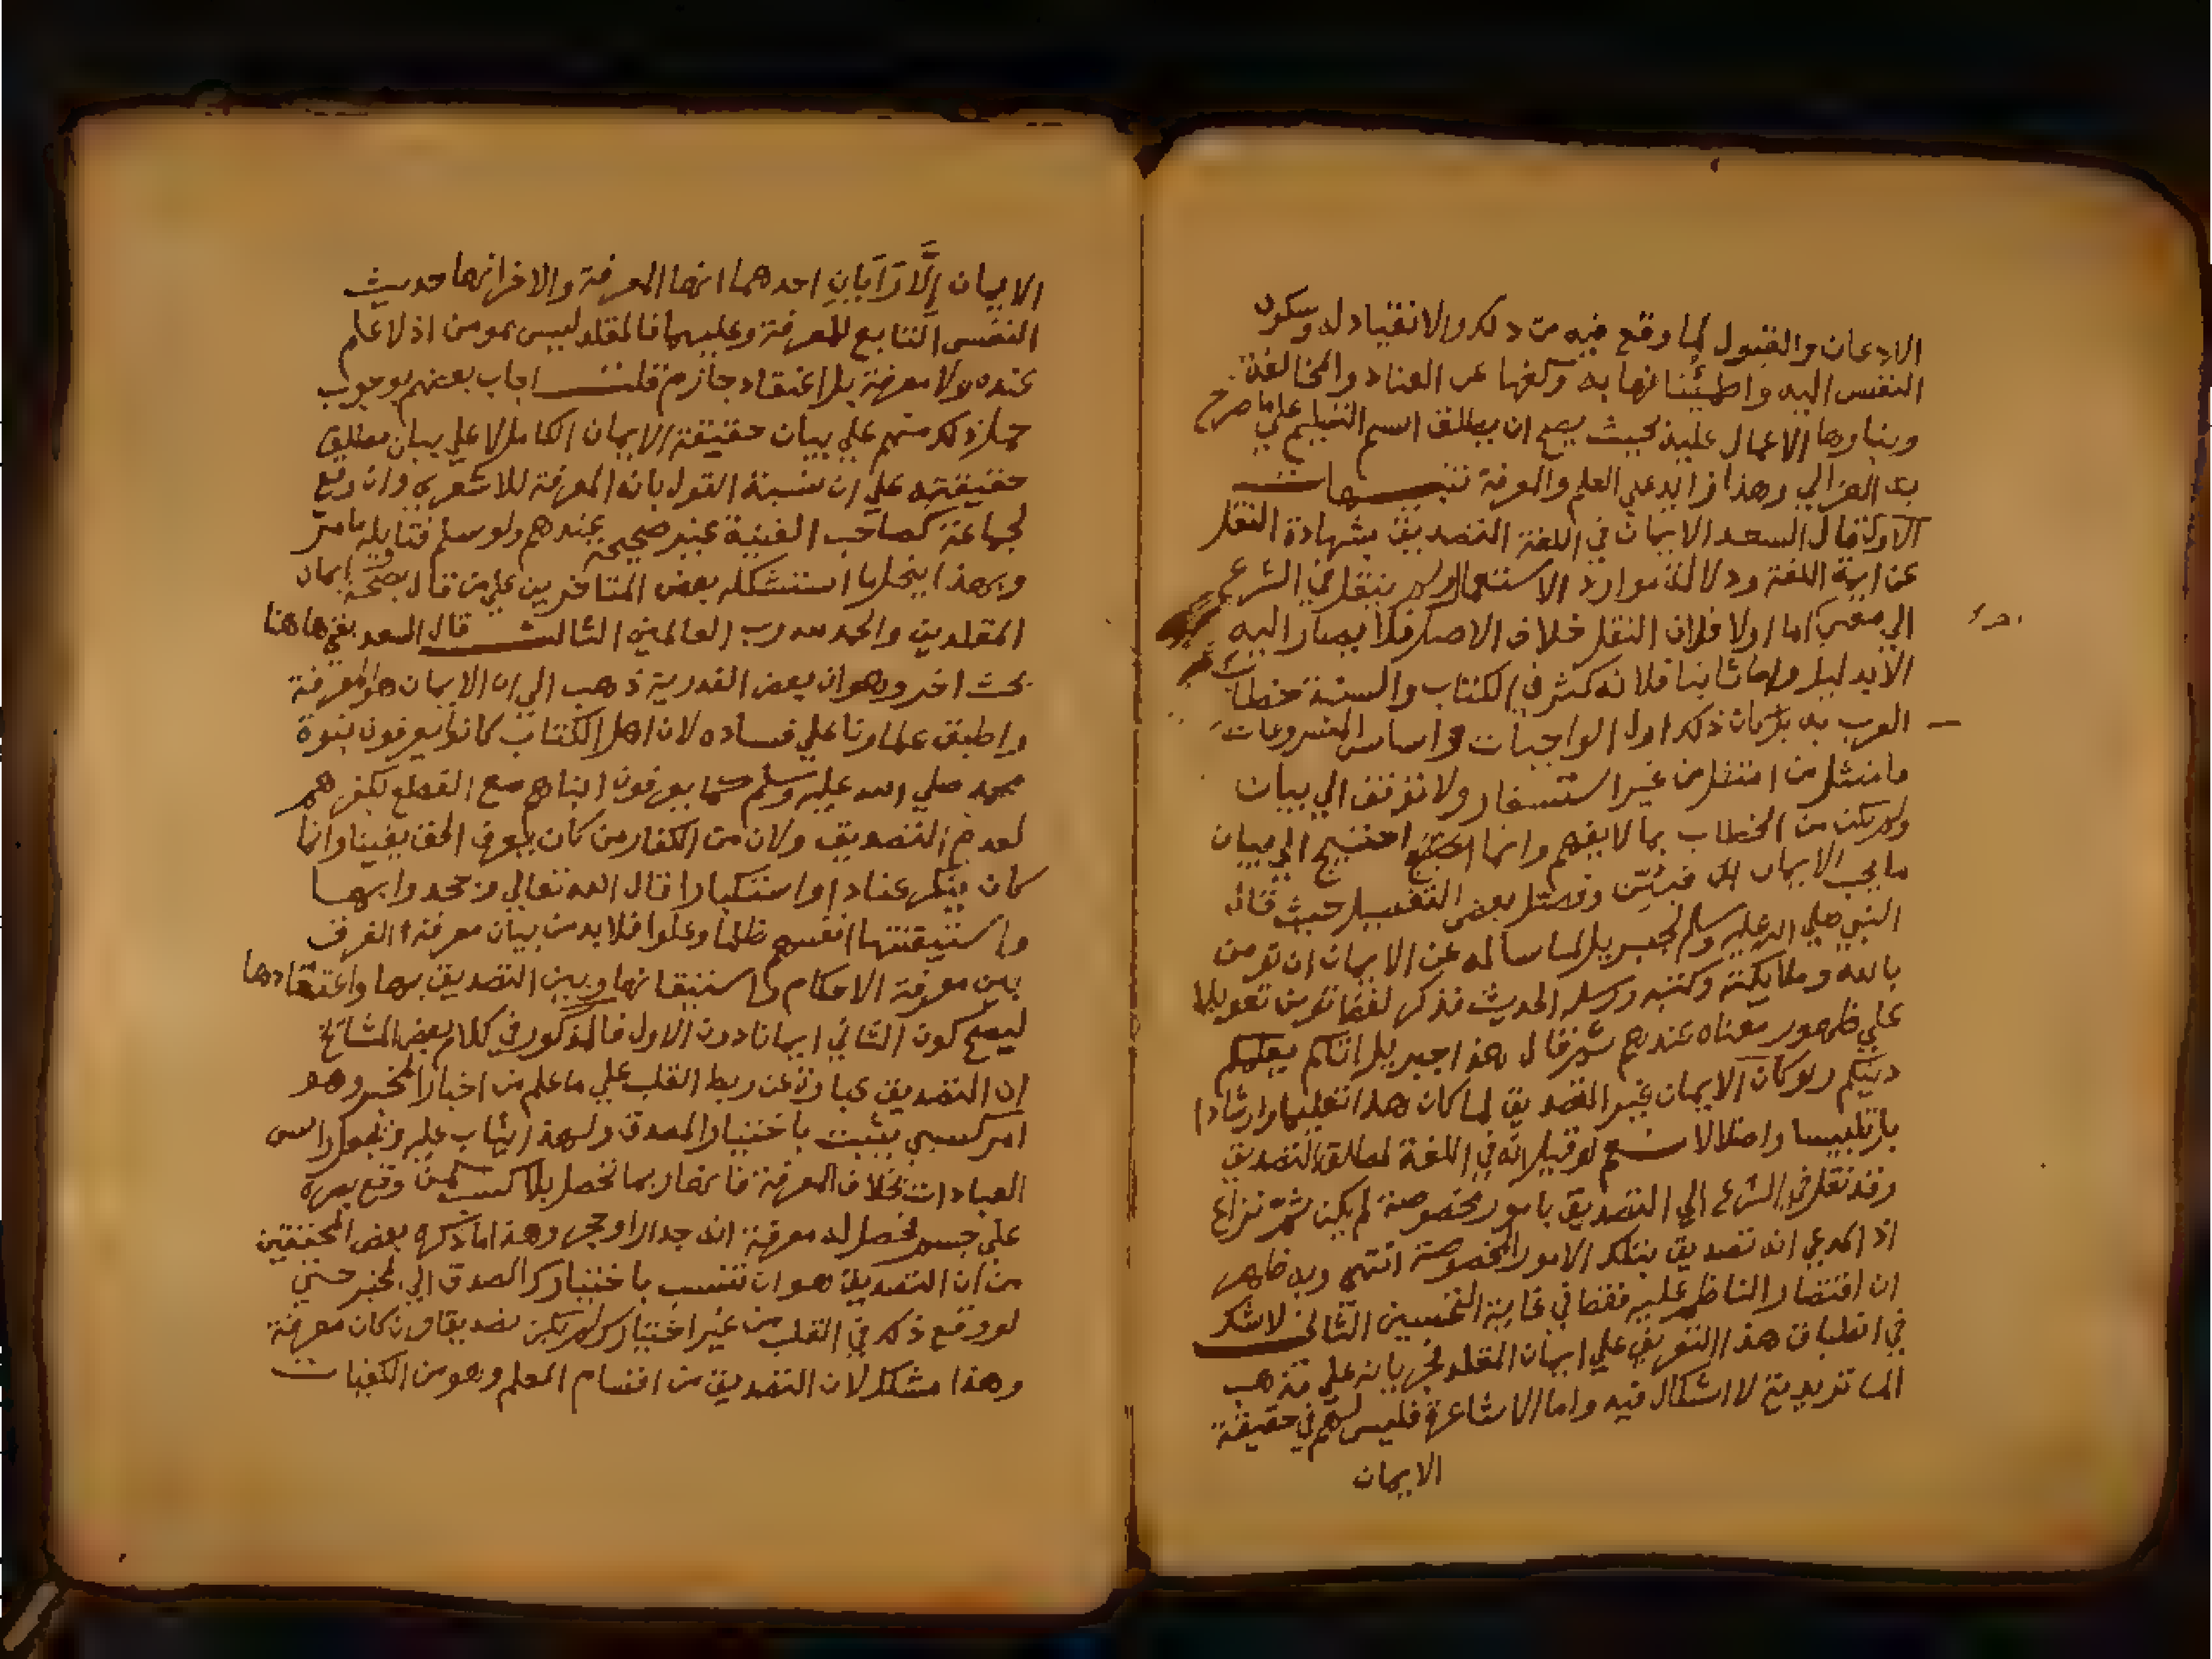 الاذعان والقبول لما وقع فيه من ذلك والانقياد له وسكون
النفس اليه واطمئنانها به وكفها عن العناد والمخالفة
وبناوها الاعمال عليه بحيث يصح ان يطلق اسم التسليم علي ما صرح
به الغزالي وهذا زايد علي العلم والمعرفة تنبيهات
الاول قال السعد الايمان في اللغة التصديق بشهادة النقل
عن ايمة اللغة ودلالة موارد الاستعمال ولم ينقل في الشرع
الي معني اما اولا فلان النقل خلاف الاصل فلا يصار اليه
الا بدليل واما ثانيا فلانه كثر في الكتاب والسنة خطاب
العرب به بل كان ذلك اول الواجبات واساس المشروعات
فامتثل من امتثل من غير استفسار ولا توقف الي بيان
ولم يكن من الخطاب بما لا يفهم وانما احتيج الي بيان
ما يجب الايمان به فبين وفصل بعض التفصيل حيث قال
النبي صلي الله عليه وسلم لجبريل لما ساله عن الايمان ان تومن
بالله وملايكته وكتبه ورسله الحديث فذكر لفظ تومن تعويلا
علي ظهور معناه عندهم ثم قال هذا جبريل اتاكم يعلمكم
دينكم ولو كان الايمان غير التصديق لما كان هذا تعليما وارشادا
بل تلبيسا واضلالا نعم لو قيل انه في اللغة لمطلق التصديق
وقد نقل في الشرع الي التصديق بامور مخصوصة لم يكن ثم نزاع
اذ المدعي انه تصديق بتلك الامور المخصوصة انتهي وبه ظهر
ان اقتصار الناظم عليه فقط في غاية التحسين الثاني لا شك
في انطباق هذا التعريف علي ايمان المقلد لجريانه علي مذهب
الماتريدية لا اشكال فيه واما الاشاعرة فليس لهم في حقيقة
الايمان
الايمان إلا رَأيَانِ احدهما انها المعرفة والاخر انها حديث
النفس التابع للمعرفة وعليهما فالمقلد ليس بمومن اذ لا علم
عنده ولا معرفة بل اعتقاد جازم قلت اجاب بعضهم بوجوب
حمل ذلك منهم علي بيان حقيقة الايمان الكامل لا علي بيان مطلق
حقيقته علي ان نسبة القول بانه المعرفة للاشعري وان وقع
لجماعة كصاحب الغنية غير صحيحة عندهم ولو سلم فقابله ما مر
وبهذا ينحل ما استشكله بعض المتاخرين علي من قال بصحة ايمان
المقلدين والحمد لله رب العالمين الثالث قال السعد بقي هاهنا
بحث اخر وهو ان بعض القدرية ذهب الي ان الايمان هو المعرفة
واطبق علماونا علي فساده لان اهل الكتاب كانوا يعرفون نبوة
محمد صلي الله عليه وسلم كما يعرفون ابناهم مع القطع بكفرهم
لعدم التصديق ولان من الكفار من كان يعرف الحق يقينا وانما
كان ينكر عنادا واستكبارا قال الله تعالي وجحدوا بها
واستيقنتها انفسهم ظلما وعلوا فلا بد من بيان معرفة الفرق
بين معرفة الاحكام واستيقانها وبين التصديق بها واعتقادها
ليصح كون الثاني ايمانا دون الاول فالمذكور في كلام بعض المشائخ
ان التصديق عبارة عن ربط القلب علي ما علم من اخبار المخبر وهو
امر كسبي يثبت باختيار المصدق ولهذا يثاب عليه ويجعل راس
العبادات بخلاف المعرفة فانها ربما تحصل بلا كسب كمن وقع بصره
علي جسم فحصل له معرفة انه جدار او حجر وهذا ما ذكره بعض المحققين
من ان التصديق هو ان تنسب باختيارك الصدق الي المخبر حتي
لو وقع ذلك في القلب من غير اختيارك لم يكن تصديقا وان كان معرفة
وهذا مشكل لان التصديق من اقسام العلم وهو من الكيفيات